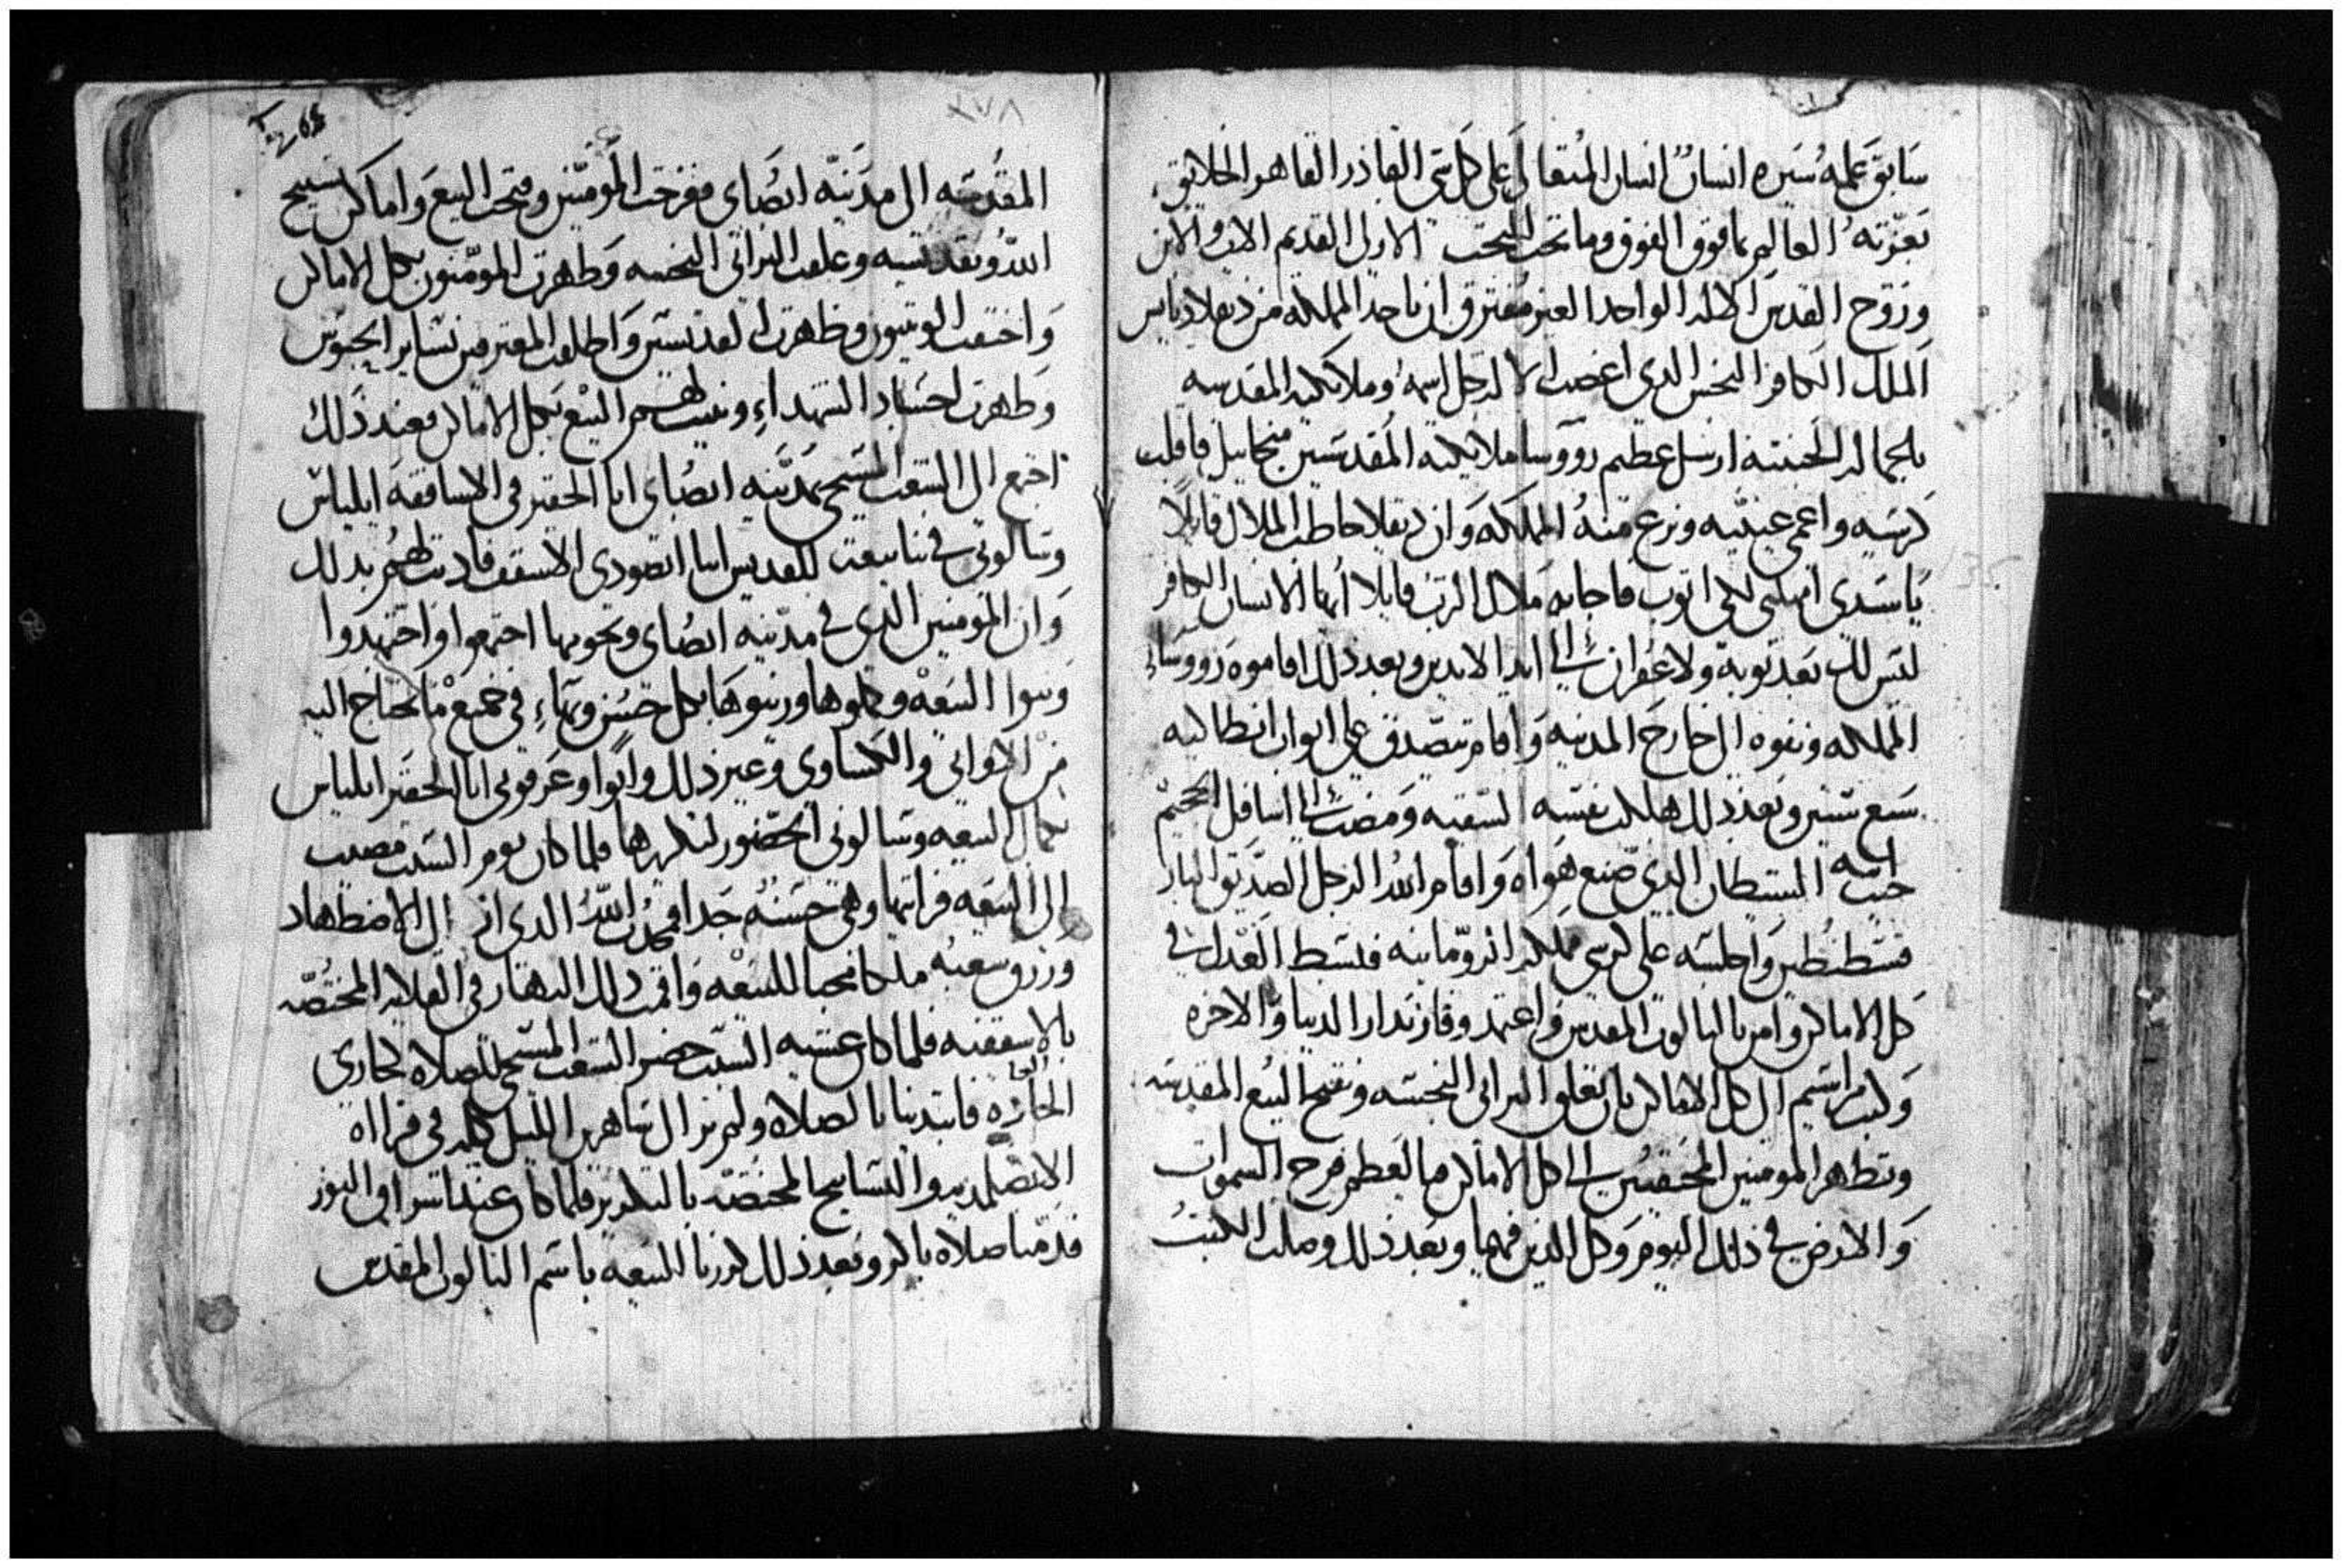 سابق علمه سيره انسان انسان المتعال على كل شى القادر القاهر الخلايق
بعزته العالم بما فوق الفوق وما تحت التحت الازلى القديم الاب والابن
وروح القدس الاله الواحد الغير مفترق ان ياخد المملكه من ديقلاديانس
الملك الكافر النجس الدى اغضب الاله جل اسمه وملايكته المقدسه
باعماله الخبيثه ارسل عظيم رووسا ملايكته المقدسين ميخاييل فاقلب
كرسيه واعمى عينيه ونزع منه المملكه وان ديقلا خاطب الملاك قايلًا
ياسيدى امهلنى لكى اتوب فاجابه ملاك الرب قايلا ايها الانسان الكافر
ليس لك بعد توبه ولا غفران الى ابد الابدين وبعد ذلك اقاموه رووساء
المملكه ونفوه الى خارج المدينه واقام يتصدق على ابواب انطاكيه
سبع سنين وبعد ذلك هلكت نفسه الشقيه ومضت الى اسافل الجحيم
حيث ابيه الشيطان الدى صنع هواه واقام الله الرجل الصديق البار
قسطنطين واجلسه على كرسى مملكه الرومانيه فبسط العدل فى
كل الاماكن وامن بالتالوت المقدس واعتمد وفاز بدار الدنيا والاخره
وكتب مراسيم الى كل الاماكن بان تغلق البرابى النجسه وتفتح البيع المقدسه
وتظهر المومنين المختفيين الى كل الاماكن يا لعظم فرح السموات
والارض فى ذلك اليوم وكل الذين فيهما وبعد ذلك وصلت الكتب
٢٧٨
المقدسه الى مدينه انصاى ففرحت المومنين وفتحت البيع واماكن تسبيح
الله وتقديسه وغلقت البرابى النجسه وظهرت المومنون بكل الاماكن
واختفت الوتنيون وظهرت القديسين واطلقت المعترفين من ساير الحبوس
وظهرت اجساد الشهداء وبنيت لهم البيع بكل الاماكن فعند ذلك
اجتمع الى الشعب المسيحى بمدينه انصاى انا الحقير فى الاساقفه ايلياس
وسالونى فى بنا بيعت للقديس ابا الاسقف فاذنت لهم بدلك
وان المومنين الذى فى مدينه انصاى وتخومها اجتمعوا واجتهدوا
وبنوا البيعه وكملوها وزينوها بكل حسن وبهاء فى جميع ما تحتاج اليه
من الاوانى والكساوى وغير ذلك واتوا وعرفونى انا الحقير ايلياس
بكمال البيعه وسالونى الحضور لتكريزها فلما كان يوم السبت مضيت
الى البيعه فرايتها وهى حسنه جدا فمجدت الله الدى ازال الاضطهاد
ورزق شعبه ملكا محبا للبيعه واقمت ذلك النهار فى القلايه المختصه
بالاسقفيه فلما كان عشيه السبت حضر الشعب المسيحى للصلاه كجارى
العاده فابتدينا بالصلاه ولم نزال ساهرين الليل كله فى قرااه
والتسابيح المختصه بالتكريز فلما كان عند اشراق النور
قدمنا صلاه باكر وبعد ذلك كرزنا البيعه باسم التالوت المقدس